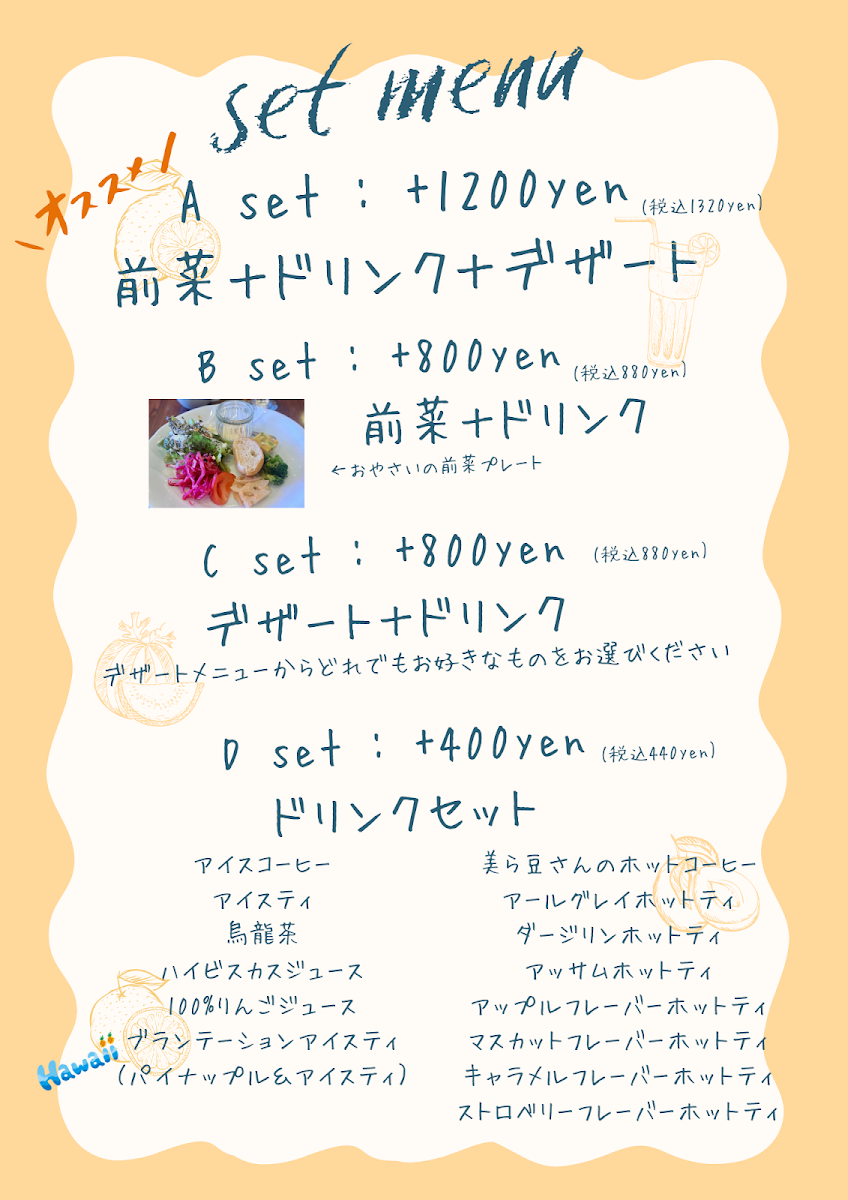 set menu
オススメ
A set : +1200yen (税込1320yen)
前菜+ドリンク+デザート
B set : +800yen (税込880yen)
前菜+ドリンク
←おやさいの前菜プレート
C set : +800yen (税込880yen)
デザート+ドリンク
デザートメニューからどれでもお好きなものをお選びください
D set : +400yen (税込440yen)
ドリンクセット
アイスコーヒー
アイスティ
烏龍茶
ハイビスカスジュース
100%りんごジュース
Hawaii
プランテーションアイスティ
(パイナップル&アイスティ)
美ら豆さんのホットコーヒー
アールグレイホットティ
ダージリンホットティ
アッサムホットティ
アップルフレーバーホットティ
マスカットフレーバーホットティ
キャラメルフレーバーホットティ
ストロベリーフレーバーホットティ